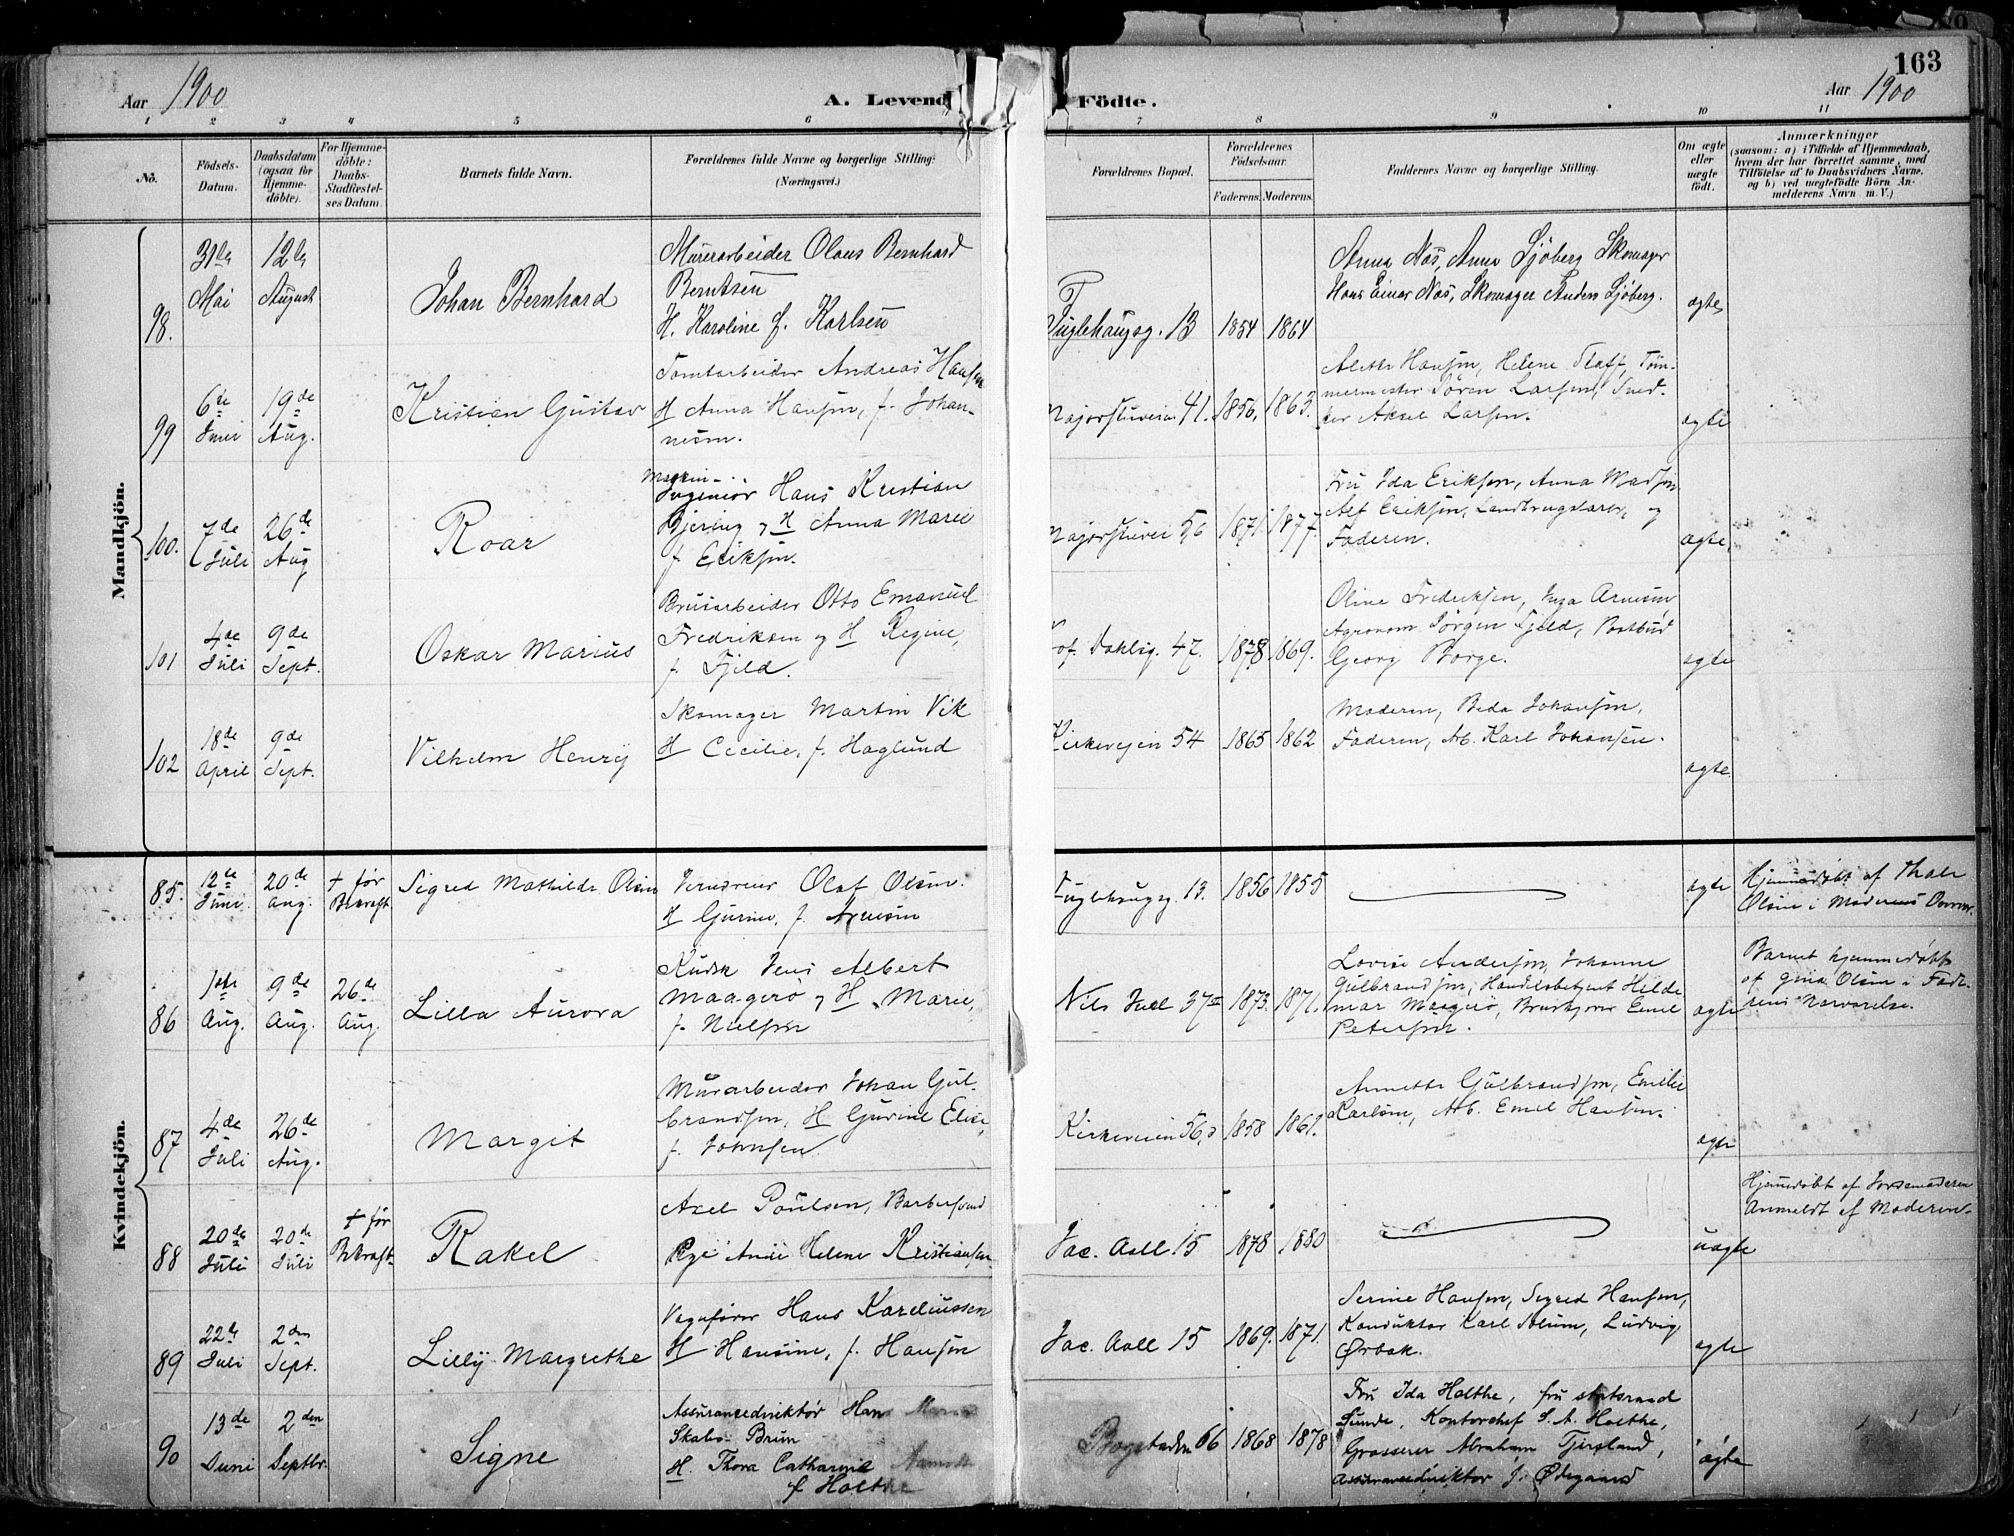 163
Aar 1900
A. Levende Födte.
Aar 1900
1 2 3 4 5 6 7 8 9 10 11
No.
Födsels-Datum.
Daabsdatum (ogsaa for Hjemmedöbte).
For Hjemmedöbte: Daabs-Stadfæstelses Datum.
Barnets fulde Navn.
Forældrenes fulde Navne og borgerlige Stilling: (Næringsvei.)
Forældrenes Bopæl.
Forældrenes Födselsaar.
Faderens. Moderens.
Faddernes Navne og borgerlige Stilling.
Om ægte eller uægte födt.
Anmærkninger
(saasom: a) i Tilfælde af Hjemmedaab, hvem der har forrettet samme, med Tilföielse af to Daabsvidners Navne, og b) ved uægtefödte Börn Anmelderens Navn m. V.)
Mandkjön.
98.
31te Mai
12te August
Johan Bernhard
Murerarbeider Olaus Bernhard
Berntsen
H. Karoline f. Karlsen
Fuglehaugsg. 13
1854
1864
Anna Nos, Anna Sjöberg Skomager
Hans Einar Nos, Skomager Anders Sjöberg.
ægte
99
6te Juni
19de Aug.
Kristian Gustav
Tomtarbeider Andreas Hansen
H Anna Hansen, f. Johan-
nesen.
Majorstuveien 41.
1856.
1863.
Alette Hansen, Helene Staff, Töm-
mermester Sören Larsen, Sned-
ker Aksel Larsen.
ægte
100.
7de Juli
26de Aug
Roar
Maskin-
Ingeniör Hans Kristian
Bjering og H Anna Marie
f. Eriksen.
Majorstuvei 56
1871.
1877.
Fru Ida Eriksen, Anna Madsen
Alf Eriksen, Landbrugslærer, og
Faderen.
ægte.
101
4de Juli
9de Sept.
Oskar Marius
Brusarbeider Otto Emanuel
Fredriksen og H Regine,
f. Fjeld.
Prof. Dahlsg. 47.
1878
1869.
Oline Fredriksen, Inga Arnesen
Agronom Jörgen Fjeld, Postbud
Georg Borge.
ægte
102
18de April
9de Sept.
Vilhelm Henry
Skomager Martin Vik
H Cecilie, f. Haglund
Kirkeveien 54
1865
1862
Moderen, Beda Johansen,
Faderen, Arb. Karl Johansen.
ægte.
Kvindekjön.
85.
12te Juni
20de Aug.
+ før Bekræft.
Sigred Mathilde Olsen
Olaf Olsen.
H Gurine, f. Arnesen
Fuglehaugsg. 13.
1856
1855
ægte
Hjemmedøbt af Thale
Olsen i Moderens Overvær.
86
1ste Aug.
9de Aug.
26de Aug.
Lilla Aurora
Kudsk Jens Albert
Maagerö og H. Marie,
f. Nielsen
Nils Juel 37 II
1873.
1871.
Lovise Andersen, Johanne
Gulbrandsen, Handelsbetjent Hilde
mar Maagerö, Bruskjører Emil
Petersen.
ægte
Barnet hjemmedøbt
af Gina Olsen i Fade-
rens Nærværelse.
87
4de Juli
26de Aug.
Margit
Murarbeider Johan Gul-
brandsen, H Gurine Elise,
f. Johnsen
Kirkeveien 56,3
1858
1861.
Annette Gulbrandsen, Emilie
Karlsen, Arb. Emil Hansen.
ægte
88
20de Juli
20de Juli
+ før Bekræft.
Rakel
Axel Poulsen, Barbersvend
Pge Anne Helene Kristiansen
Jac. Aall 15
1878
1880
uægte
Hjemmedøbt af Jordemoderen
Anmeldt af Moderen.
89
22de Juli
2den Sept.
Lilly Margrethe
Vognfører Hans Kareliussen
H Hansine, f. Hansen
Jac. Aall 15
1869.
1871.
Serine Hansen, Sigred Hansen,
Konduktør Karl Solum, Ludvig
Ørbæk.
ægte
90
13de Juni
2den Septbr.
Signe
Assurancedirektør Hans
Skabo Brun
H. Thora Catharine
f Holthe
Bogstadvn 66
1868
1878
Fru Ida Holthe, fru statsraad
Sunde, Kontorchef S. A. Holthe,
Grosserer Abraham Tjersland,
Assurancedirektør J. Ødegaard
ægte